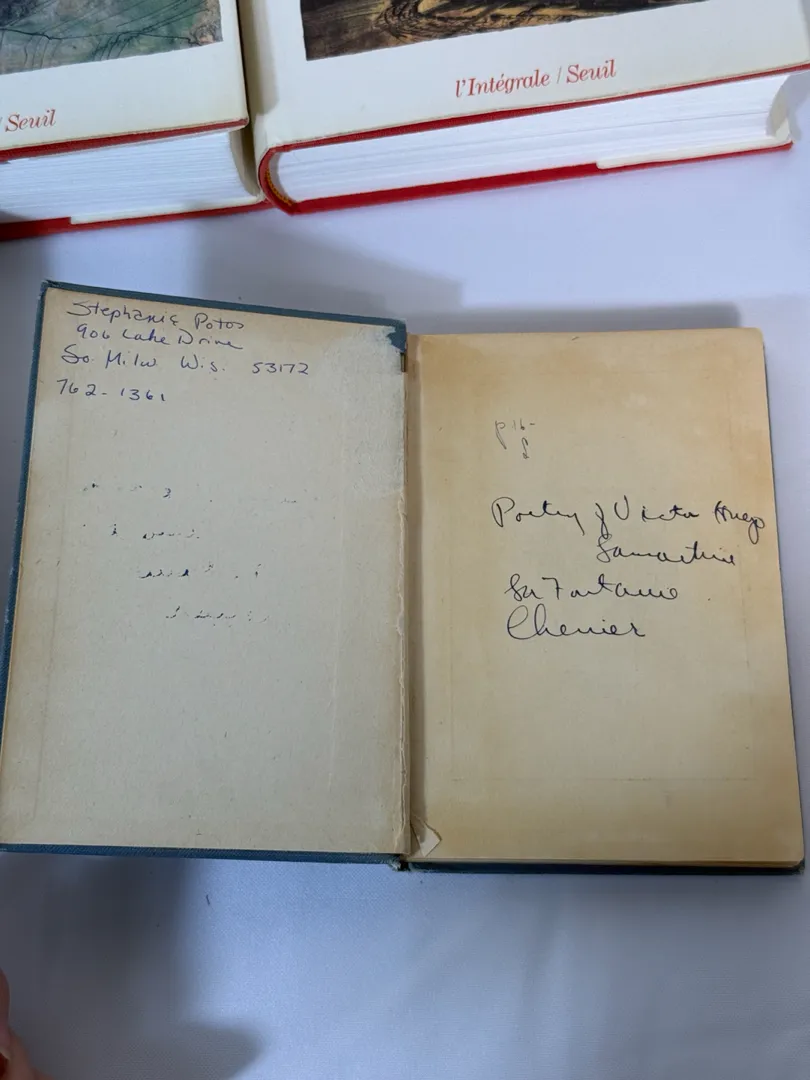 / Seuil
l'Intégrale / Seuil
Stephanie Potos
906 Lake Drive
So. Milw Wis. 53172
762-1361
p 16-
Poetry of Victor Hugo
Lamartine
La Fontaine
Chenier